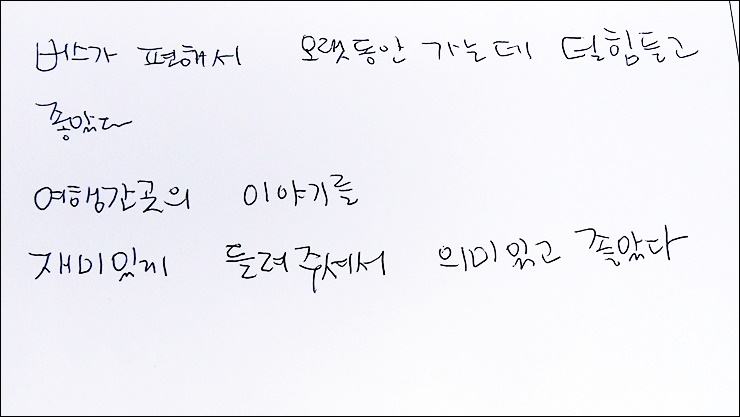 버스가 편해서 오랫동안 가는데 덜힘들고
좋았다
여행간곳의 이야기를
재미있게 들려주셔서 의미있고 좋았다